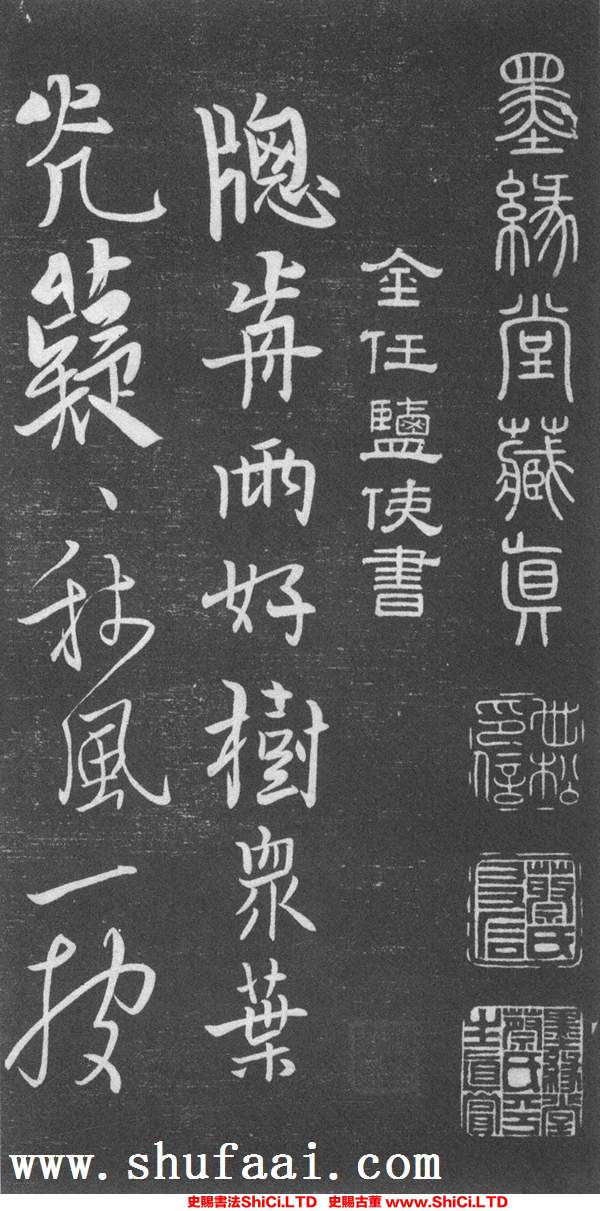 墨緣堂藏眞
世松印信
金任鹽使書
牕歬兩好樹衆葉
光薿、秋風一披
www.shufaai.com
史賜書法ShiCi.LTD 史賜古董 www.ShiCi.LTD